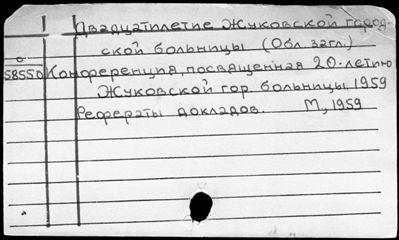 Двадцатилетие Жуковской город-
ской больницы (Обл. загл.)
о.
58550 Конференция, посвященная 20-летию
Жуковской гор. больницы. 1959
Рефераты докладов. М., 1959